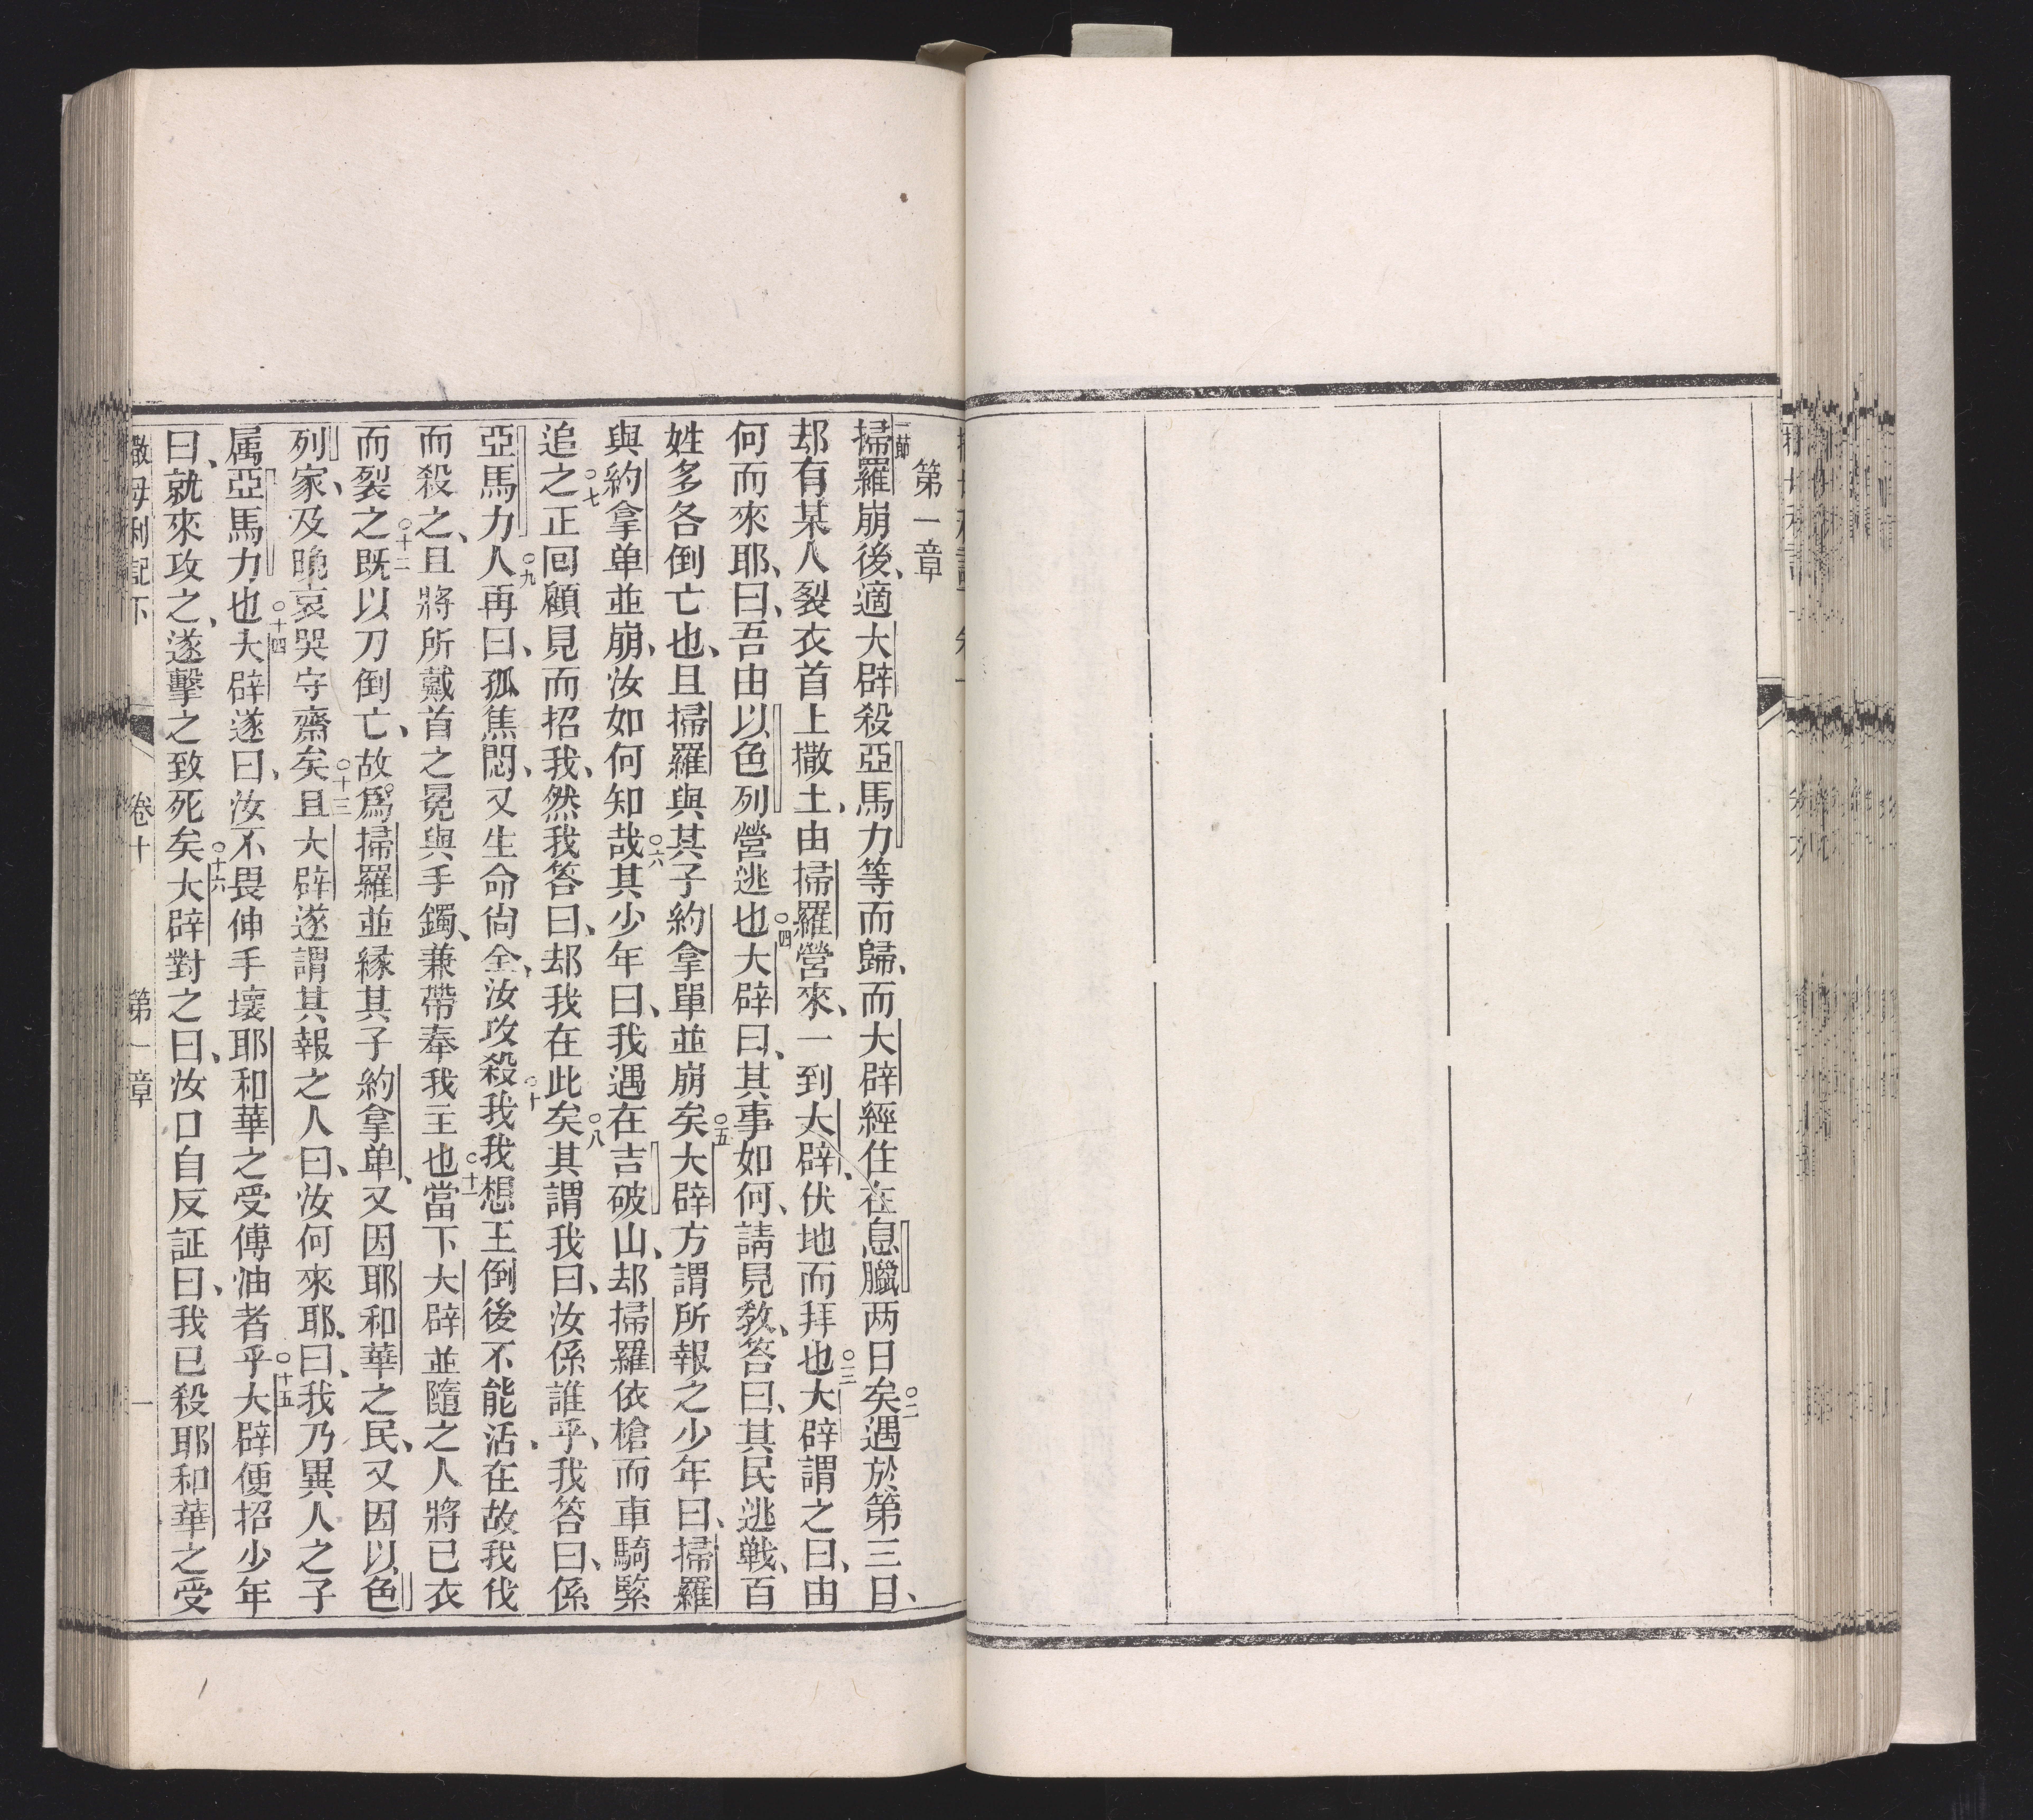 第一章
一節
掃羅崩後、適大辟殺亞馬力等而歸、而大辟經住在息臘两日矣○二遇於第三日、
却有某人裂衣首上撒土、由掃羅營來、一到大辟、伏地而拜也○三大辟謂之曰、由
何而來耶、曰、吾由以色列營逃也○四大辟曰、其事如何、請見教、答曰、其民逃戦、百
姓多各倒亡也、且掃羅與其子約拿單並崩矣○五大辟方謂所報之少年曰、掃羅
與約拿单並崩、汝如何知哉○六其少年曰、我遇在吉破山、却掃羅依槍而車騎緊
追之○七正回顧見而招我、然我答曰、却我在此矣○八其謂我曰、汝係誰乎、我答曰、係
亞馬力人○九再曰、孤焦悶、又生命尙全、汝攻殺我○十我想王倒後不能活、在故我伐
而殺之、且將所戴首之冕與手鐲、兼帶奉我主也○十一當下大辟並隨之人將已衣
而裂之○十二既以刀倒亡、故爲掃羅並縁其子約拿单、又因耶和華之民、又因以色
列家、及晚哀哭守齋矣○十三且大辟遂謂其報之人曰、汝何來耶、曰、我乃異人之子
属亞馬力也○十四大辟遂曰、汝不畏伸手壞耶和華之受傅油者乎○十五大辟便招少年
曰、就來攻之、遂擊之致死矣○十六大辟對之曰、汝口自反証曰、我已殺耶和華之受
撒母利記下 卷十 第一章 一